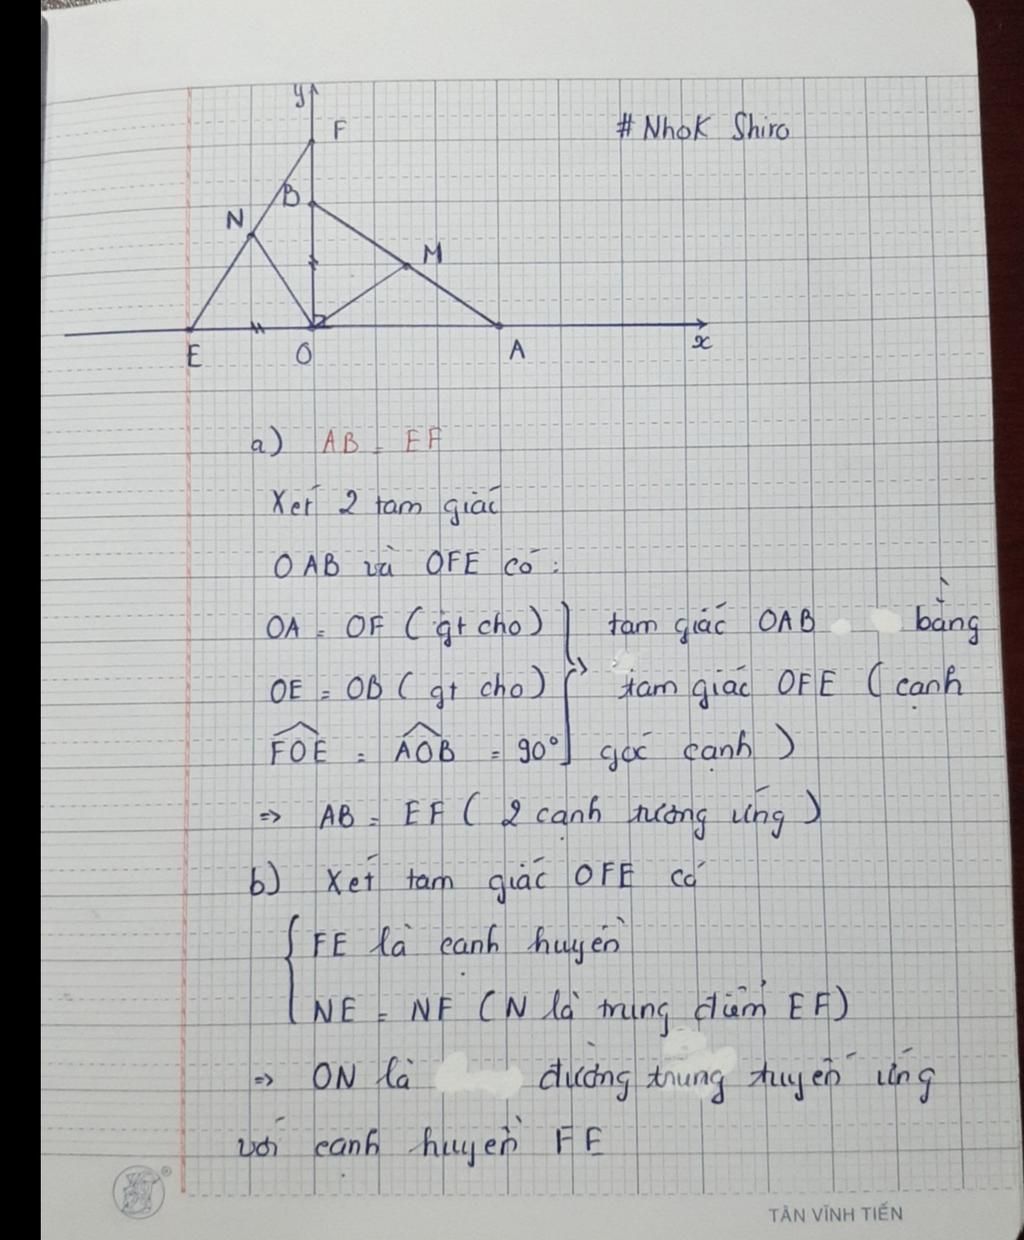 y
F
# Nhok Shiro
B
N
M
E
O
A
x
a) AB = EF
Xét 2 tam giác
OAB và OFE có:
OA = OF (gt cho) } tam giác OAB bằng
OE = OB (gt cho) => tam giác OFE (cạnh
FOE = AOB = 90° góc cạnh)
=> AB = EF (2 cạnh tương ứng)
b) Xét tam giác OFE có
{ FE là cạnh huyền
NE = NF (N là trung điểm EF)
=> ON là đường trung tuyến ứng
với cạnh huyền FE
TÂN VĨNH TIẾN